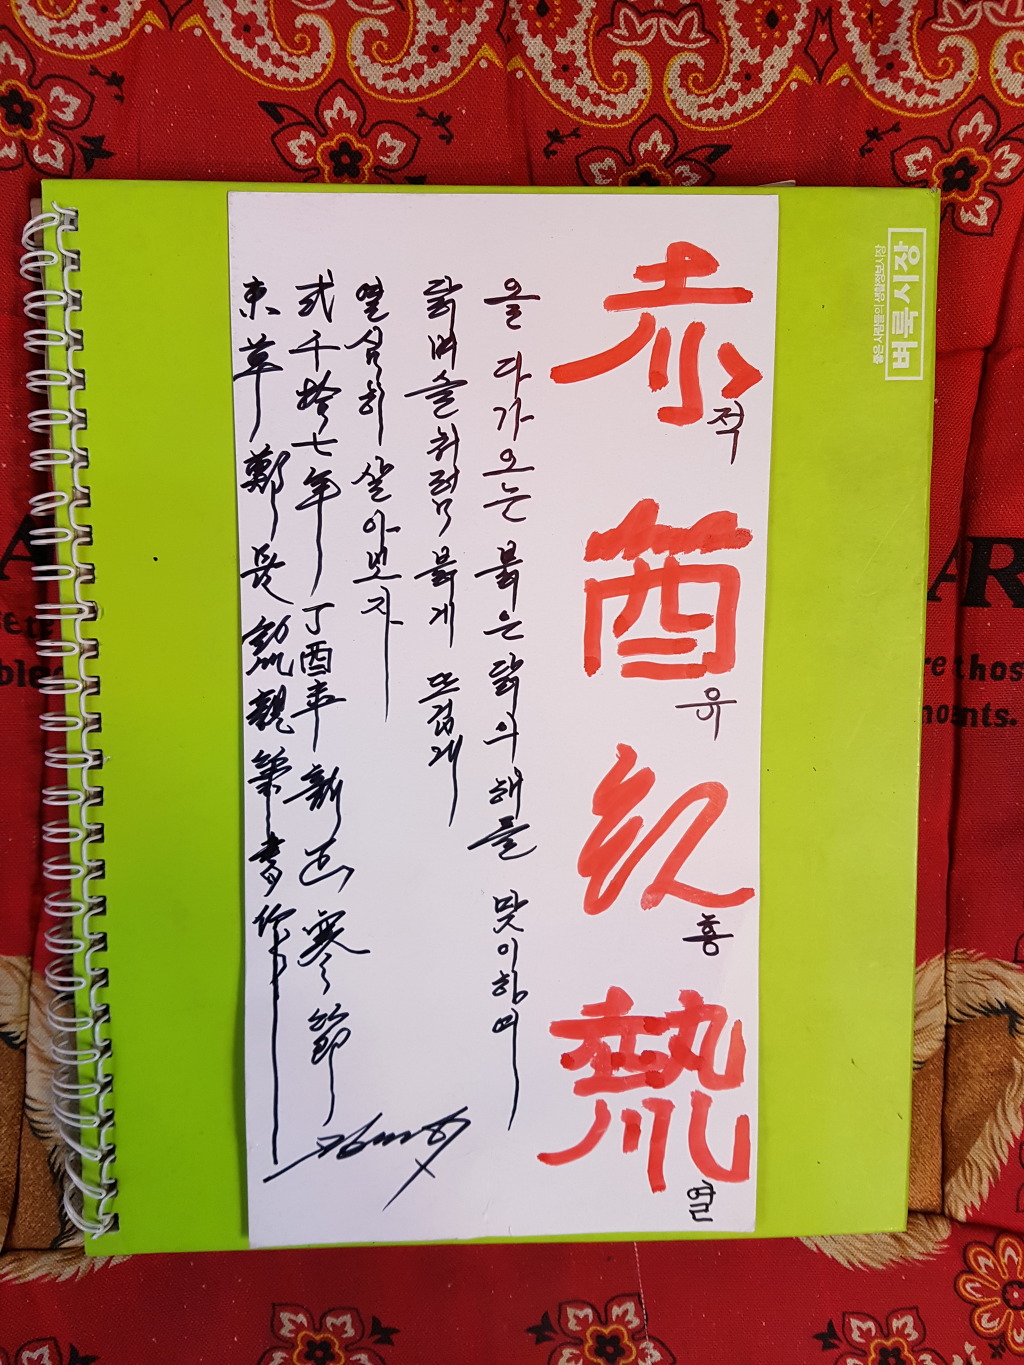 赤酉紅熱
적유홍열
올 다가오는 붉은 닭의 해를 맞이하여
닭벼슬처럼 붉게 뜨겁게
열심히 살아보자
弐千拾七年 丁酉年 新正 寒節
東草 鄭 親筆書作
벼룩시장
좋은 사람들의 생활정보시장
AR
re those